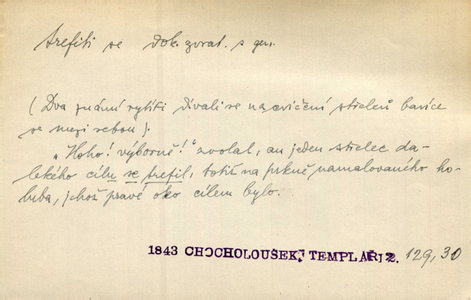 trefiti se dok. zvrat. s gen.
(Dva známí rytíři dívali se na cvičení střelců bavíce
se mezi sebou).
"Hoho! výborně!" zvolal, an jeden střelec da-
lekého cílu se trefil, totiž na prkně namalovaného ho-
luba, jehož pravé oko cílem bylo.
1843 CHOCHOLOUŠEK, TEMPLÁŘI 2. 129, 30